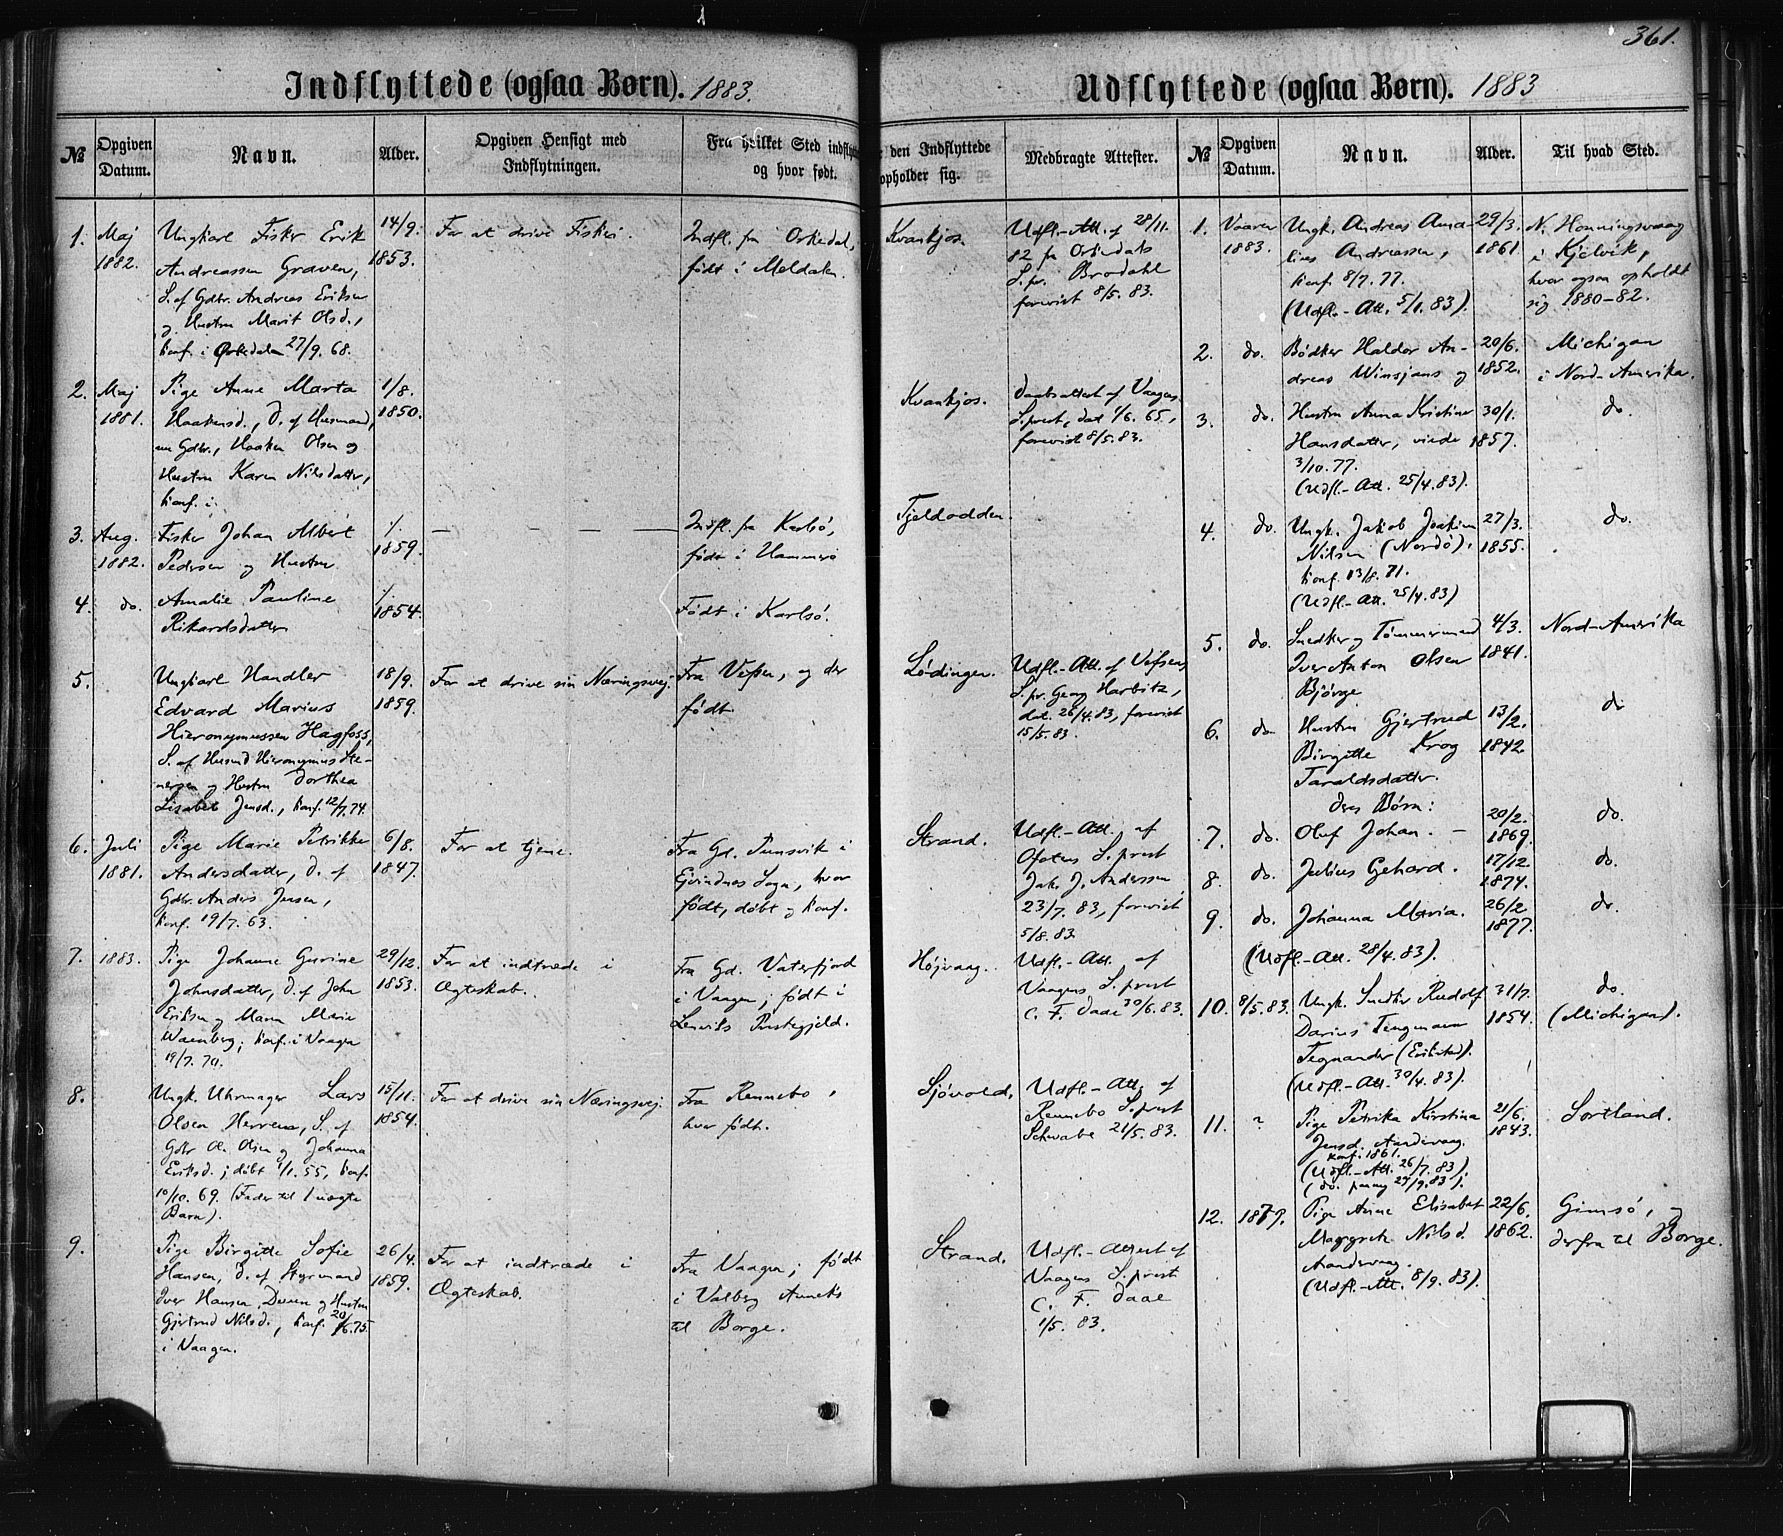 361.
Indflyttede (ogsaa Børn). 1883.
№
Opgiven Datum.
Navn.
Alder.
Opgiven Hensigt med Indflytningen.
Fra hvilket Sted indfly
og hvor født.
1. Maj 1882.
Ungkarl Fisker Erik
Andreassen Graven,
S. af Gdbr. Andreas Eriksen
og Hustru Marit Olsd.,
konf. i Orkedalen 27/9. 68.
14/9. 1853.
For at drive Fiskeri.
Indfl. fra Orkedal,
født i Meldalen.
2. Maj 1881.
Pige Anne Marta
Haakensd., D. af Husmand,
nu Gdbr., Haaken Olsen og
Hustru Karen Nilsdatter,
konf. i
1/8. 1850.
3. Aug. 1882.
Fisker Johan Albert
Pedersen og Hustru
1859.
Indfl. fra Karlsö,
födt i Hammerö
4. do.
Amalie Pauline
Rikardsdatter
1854.
Födt i Karlsö.
5.
Ungkarl Handler
Edvard Marius
Hieronymussen Hagfoss,
S. af Husmd Hieronymus Ste-
nersen og Hustru Dorthea
Lisabet Jensd., konf. 12/7. 74.
18/9. 1859.
For at drive sin Næringsvej.
Fra Vefsen, og der
födt.
6. Juli 1881.
Pige Marie Petrikke
Andersdatter, D. af
Gdbr. Anders Jensen,
konf. 19/7. 63.
6/8. 1847.
For at tjene.
Fra Gd. Punsvik i
Ejvindnes Sogn, hvor
födt, döbt og konf.
7. 1883.
Pige Johanne Gurine
Johnsdatter, D. af John
Eriksen og Maren Marie
Warnberg; konf. i Vaagen
19/7. 70.
29/12. 1853.
For at indtræde i
Ægteskab.
Fra Gd. Vaterfjord
i Vaagen; födt i
Lenviks Prestegjeld.
8.
Ungk. Uhrmager Lars
Olsen Herrem, S. af
Gdbr Ol. Olsen og Johanna
Eriksd.; döbt 1/1. 55, konf.
10/10. 69. (Fader til 1 uægte
Barn).
15/11. 1854.
For at drive sin Næringsvej.
Fra Rennebo,
hvor födt.
9.
Pige Birgitte Sofie
Hansen, D. af Styrmand
Iver Hansen Dreyer og Hustru
Gjertrud Nilsd., konf. 20/6. 75
i Vaagen.
26/4. 1859.
For at indtræde i
Ægteskab.
Fra Vaagen; födt
i Valberg Anneks
til Borge.
Udflyttede (ogsaa Børn). 1883
den Indflyttede
opholder sig.
Medbragte Attester.
№
Opgiven Datum.
Navn.
Alder.
Til hvad Sted.
Kvankjos.
Udfl.-Att. af 28/11.
82 fra Orkedals
S. pr. Brodahl
forevist 8/5. 83.
Kvankjos.
Daabsattest af Vaagens
S. prest, dat 1/6. 65,
forevist 8/5. 83.
Fjeldodden.
Lödingen.
Udfl.-Att. af Vefsens
S. pr. Georg Harbitz,
dat. 26/4. 83, forevist
15/5. 83.
Strand.
Udfl.-Att. af
Ofotens S. prest
Jak. J. Anderssen
23/7. 83, forevist
5/8. 83.
Höjvaag.
Udfl.-Att. af
Vaagens S. prest
C. F. Daae 30/6. 83.
Sjövold.
Udfl.-Att. af
Rennebo S. prest
Schwabe 21/5. 83.
Strand.
Udfl.-Attest af
Vaagens S. prest
C. F. Daae
1/5. 83.
1. Vaaren 1883.
Ungk. Andreas Ama-
lius Andreassen,
konf. 8/7. 77.
(Udfl.-Att. 5/1. 83).
29/3. 1861.
N. Honningsvaag
i Kjelvik,
hvor ogsaa opholdt
sig 1880-82.
2. do.
Bödker Haldor An-
dreas Winsjans og
20/6. 1852.
Michigan
i Nord-Amerika.
3. do.
Hustru Anna Kristine
Hansdatter, viede
3/10. 77.
(Udfl.-Att. 25/4. 83).
30/1. 1857.
do.
4. do.
Ungk. Jakob Joakim
Nilsen (Nordö),
konf. 13/8. 71.
(Udfl.-Att. 25/4. 83)
27/3. 1855.
do.
5. do.
Snedker og Tömmermand
Iver Anton Olsen
Björge
4/3. 1841.
Nord-Amerika
6. do
Hustru Gjertrud
Birgitte Krog
Taraldsdatter.
13/2. 1842.
do
deres Börn:
7. do.
Oluf Johan. -
20/2. 1869.
do.
8. do.
Julius Gehard.
17/12 1874.
do.
9. do.
Johanna Maria.
26/2 1877.
do.
(Udfl.-Att. 28/4. 83).
10. 8/5. 83.
Ungk. Snedker Rudolf
Darius Tengmann
Tegnander (Erikstad).
(Udfl.-Att. 30/4. 83).
31/7. 1854.
do.
(Michigan).
11. ?
Pige Petrika Kirstina
Jensd. Aandervaag.
konf. 1861.
(Udfl.-Att. 26/7. 83).
(do. paany 29/9. 83).
21/6. 1843.
Sortland.
12. 1879.
Pige Anne Elisabet
Margrete Nilsd.
Aandervaag.
(Udfl.-Att. 8/9. 83).
22/6. 1862.
Gimsö, og
derfra til Borge.